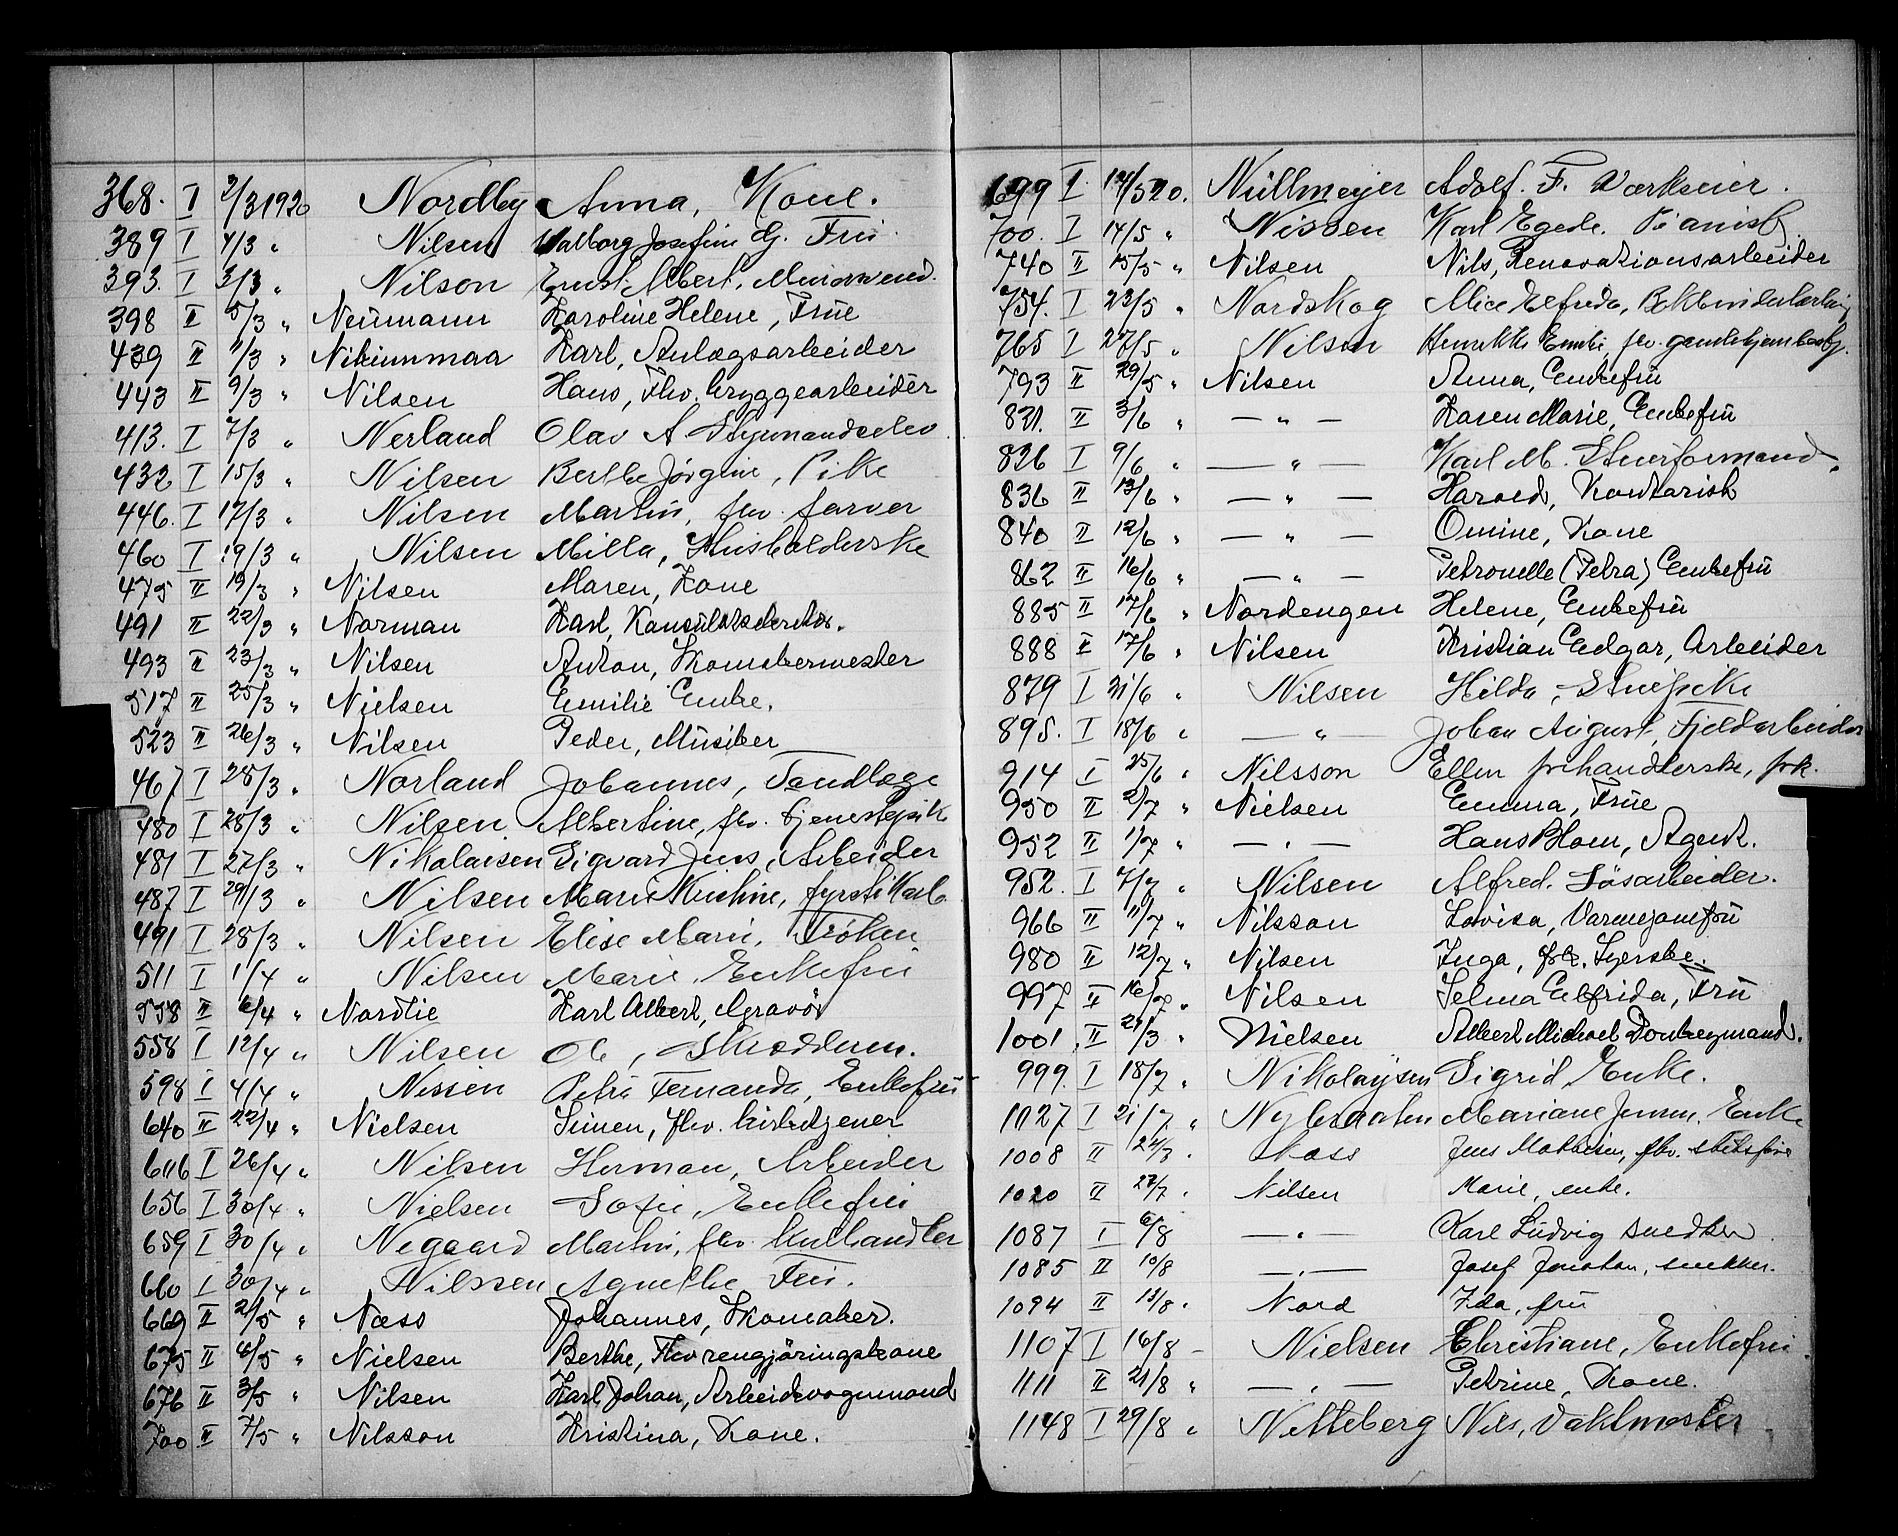 368. I 2/3 1920 Nordby Anna, Kone.
389 I 4/3 " Nilsen Valborg Josefine G. Fru.
393. I 3/3 " Nilson Ernst Albert,
398 II 5/3 " Neumann Karoline Helene, Frue
439 II 11/3 " Nikinmaa Karl, Anlægsarbeider
443 II 9/3 " Nilsen Hans, Fhv. bryggearbeider
413. I 7/3 " Nerland Olav A Styrmandselev
432 I 15/3 " Nilsen Berthe Jørgine, Pike
446. I 17/3 " Nilsen Martin, fhv. farver
460 I 19/3 " Nilsen Milla, Husholderske
475 II 19/3 " Nilsen Maren, Kone
491 II 22/3 " Norman Karl,
493 II 23/3 " Nilsen Anton, Skomakermester
517 II 25/3 " Nielsen Emilie Enke.
523 II 26/3 " Nilsen Peder, Musiker
467 I 28/3 " Norland Johannes, Tandlæge
480 I 28/3 " Nilsen Albertine, fhv. tjenestepike
481 I 27/3 " Nikolaisen Sigvard Jens, Arbeider
487 I 29/3 " Nilsen Marie Kristine,
491 I 28/3 " Nilsen Elise Marie, Frøken
511 I 1/4 " Nilsen Marie, Enkefru
558 II 6/4 " Nordlie Karl Albert, Gravør
558 I 12/4 " Nilsen Ole, Skrædder.
598 I 4/4 " Nissen Petra Fernanda, Enkefru
640 II 22/4 " Nielsen Simen, fhv. kirketjener
646 I 26/4 " Nilsen Herman, Arbeider
656 I 30/4 " Nielsen Sofie, Enkefru
659 I 30/4 " Negaard Martin, fhv. Kulhandler
660 I 30/4 " Nilssen Agnethe Fru.
669 II 2/5 " Næss Johannes, Skomaker.
675 II 4/5 " Nielsen Berthe, Fhv rengjöringskone
676 II 3/5 " Nilsen Karl Johan, Arbeidsvognmand
700 II 7/5 " Nilsson Kristina, Kone.
699 I 14/5 20. Nüllmeyer Adolf. F. Værkseier.
700. I 14/5 " Nissen Karl Egede. Pianist
740 II 15/5 " Nilsen Nils, Renovationsarbeider
754. I 22/5 " Nordskog Alice Elfreda,
765 I 27/5 " Nilsen fhv. gamlehjembest.
793 II 29/5 " Nilsen Anna, Enkefru
831. II 3/6 " — " — Karen Marie, Enkefru
826 I 9/6 " — " — Karl M. Stuerformand.
836 II 13/6 " — " — Harald, Kontorist
840 II 12/6 " — " — Omine, Kone
862 II 16/6 " — " — Petronelle (Petra) Enkefru
885 II 17/6 " Nordengen Helene, Enkefru
888 II 17/6 " Nilsen Kristian Edgar, Arbeider
879 I 21/6 " Nilsen Hilda, Stuepike
895. I 18/6 " — " — Johan August, Fjeldarbeider
914 I 25/6 " Nilsson Ellen frk.
950 II 2/7 " Nielsen Emma, Frue
952 II 1/7 " — " — Hans Blom, Agent.
952. I 7/7 " Nilsen Alfred. Løsarbeider.
966 II 11/7 " Nilsson Lovisa, Varmejomfru
980 II 12/7 " Nilsen Inga, frk. Syerske.
997 II 16/7 " Nilsen Selma Elfrida, Fru
1001. II 21/3 " Nielsen Albert Michael Donkeymand.
999. I 18/7 " Nikolaysen Sigrid, Enke.
1027 I 21/7 " Nybraaten Mariane Jensen, Enke
1008 II 24/3 " Næss Jens Mathisen, fhv.
1020 II 27/7 " Nilsen Marie, enke.
1087 I 6/8 — " — Karl Ludvig snedker.
1085 II 10/8 — " — Josef Jonathan, snekker.
1094 II 13/8 " Nord Ida, fru
1107 I 16/8 – Nielsen Christiane, Enkefru.
1111 II 21/8 " — " — Petrine, Kone.
1148 I 29/8 " Netteberg Nils, Vaktmester